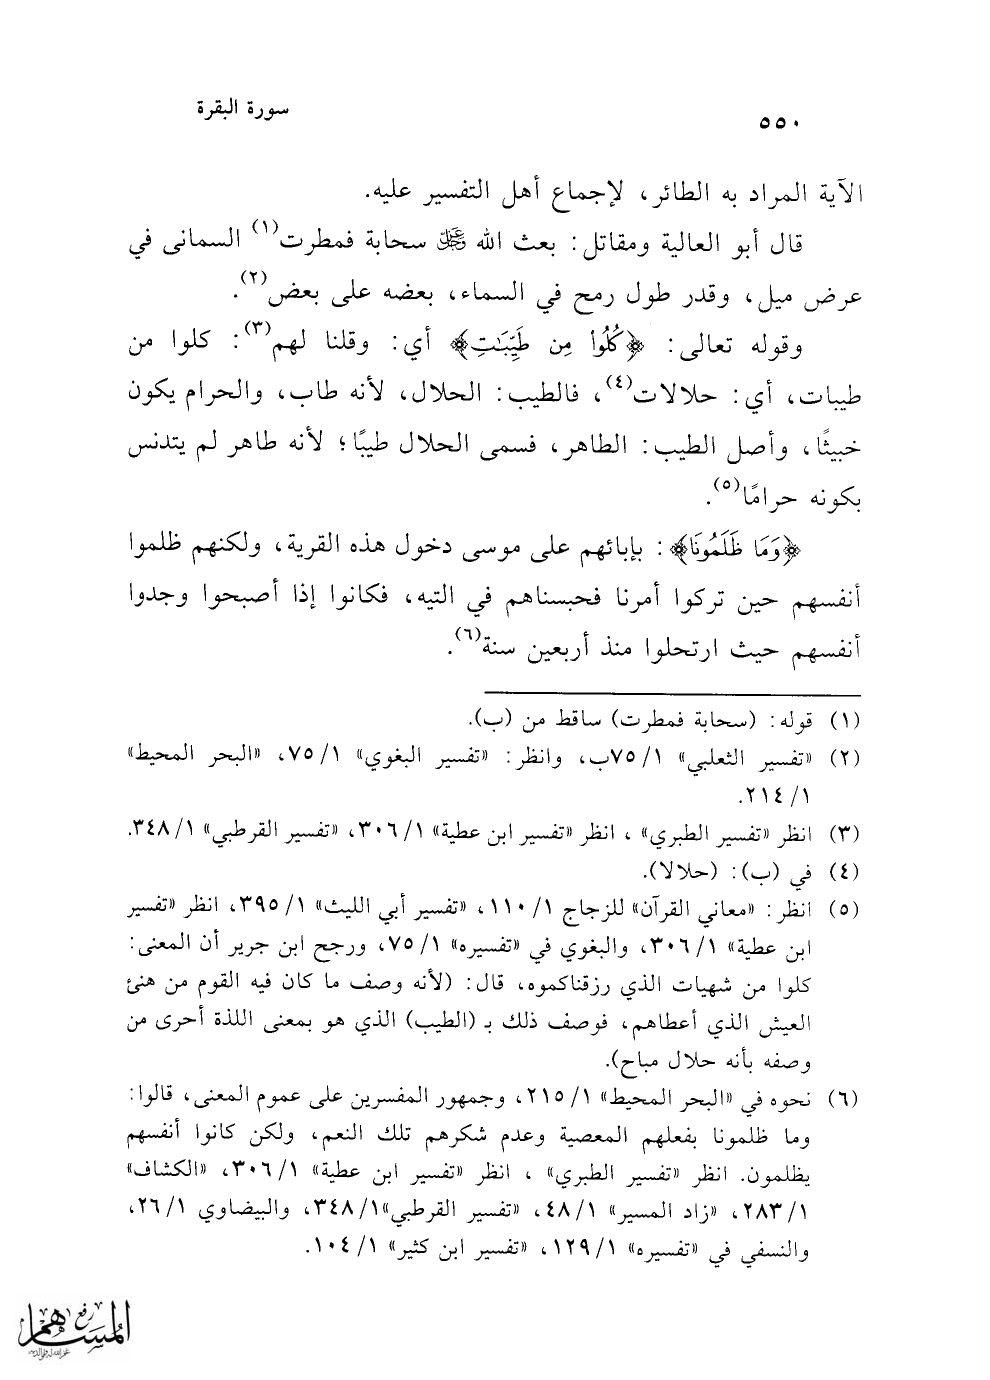 ٥٥٠
سورة البقرة
الآية المراد به الطائر، لإجماع أهل التفسير عليه.
قال أبو العالية ومقاتل: بعث الله عز وجل سحابة فمطرت(١) السمانى في
عرض ميل، وقدر طول رمح في السماء، بعضه على بعض(٢).
وقوله تعالى: ﴿كُلُوا۟ مِن طَيِّبَـٰتِ﴾ أي: وقلنا لهم(٣): كلوا من
طيبات، أي: حلالات(٤)، فالطيب: الحلال، لأنه طاب، والحرام يكون
خبيثًا، وأصل الطيب: الطاهر، فسمى الحلال طيبًا؛ لأنه طاهر لم يتدنس
بكونه حرامًا(٥).
﴿وَمَا ظَلَمُونَا﴾: بإبائهم على موسى دخول هذه القرية، ولكنهم ظلموا
أنفسهم حين تركوا أمرنا فحبسناهم في التيه، فكانوا إذا أصبحوا وجدوا
أنفسهم حيث ارتحلوا منذ أربعين سنة(٦).
(١) قوله: (سحابة فمطرت) ساقط من (ب).
(٢) «تفسير الثعلبي» ١/ ٧٥ب، وانظر: «تفسير البغوي» ١/ ٧٥، «البحر المحيط»
١/ ٢١٤.
(٣) انظر «تفسير الطبري» ، انظر «تفسير ابن عطية» ١/ ٣٠٦، «تفسير القرطبي» ١/ ٣٤٨.
(٤) في (ب): (حلالا).
(٥) انظر: «معاني القرآن» للزجاج ١/ ١١٠، «تفسير أبي الليث» ١/ ٣٩٥، انظر «تفسير
ابن عطية» ١/ ٣٠٦، والبغوي في «تفسيره» ١/ ٧٥، ورجح ابن جرير أن المعنى:
كلوا من شهيات الذي رزقناكموه، قال: (لأنه وصف ما كان فيه القوم من هنئ
العيش الذي أعطاهم، فوصف ذلك بـ (الطيب) الذي هو بمعنى اللذة أحرى من
وصفه بأنه حلال مباح).
(٦) نحوه في «البحر المحيط» ١/ ٢١٥، وجمهور المفسرين على عموم المعنى، قالوا:
وما ظلمونا بفعلهم المعصية وعدم شكرهم تلك النعم، ولكن كانوا أنفسهم
يظلمون. انظر «تفسير الطبري» ، انظر «تفسير ابن عطية» ١/ ٣٠٦، «الكشاف»
١/ ٢٨٣، «زاد المسير» ١/ ٤٨، «تفسير القرطبي»١/ ٣٤٨، والبيضاوي ١/ ٢٦،
والنسفي في «تفسيره» ١/ ١٢٩، «تفسير ابن كثير» ١/ ١٠٤.
رفع
المساهم